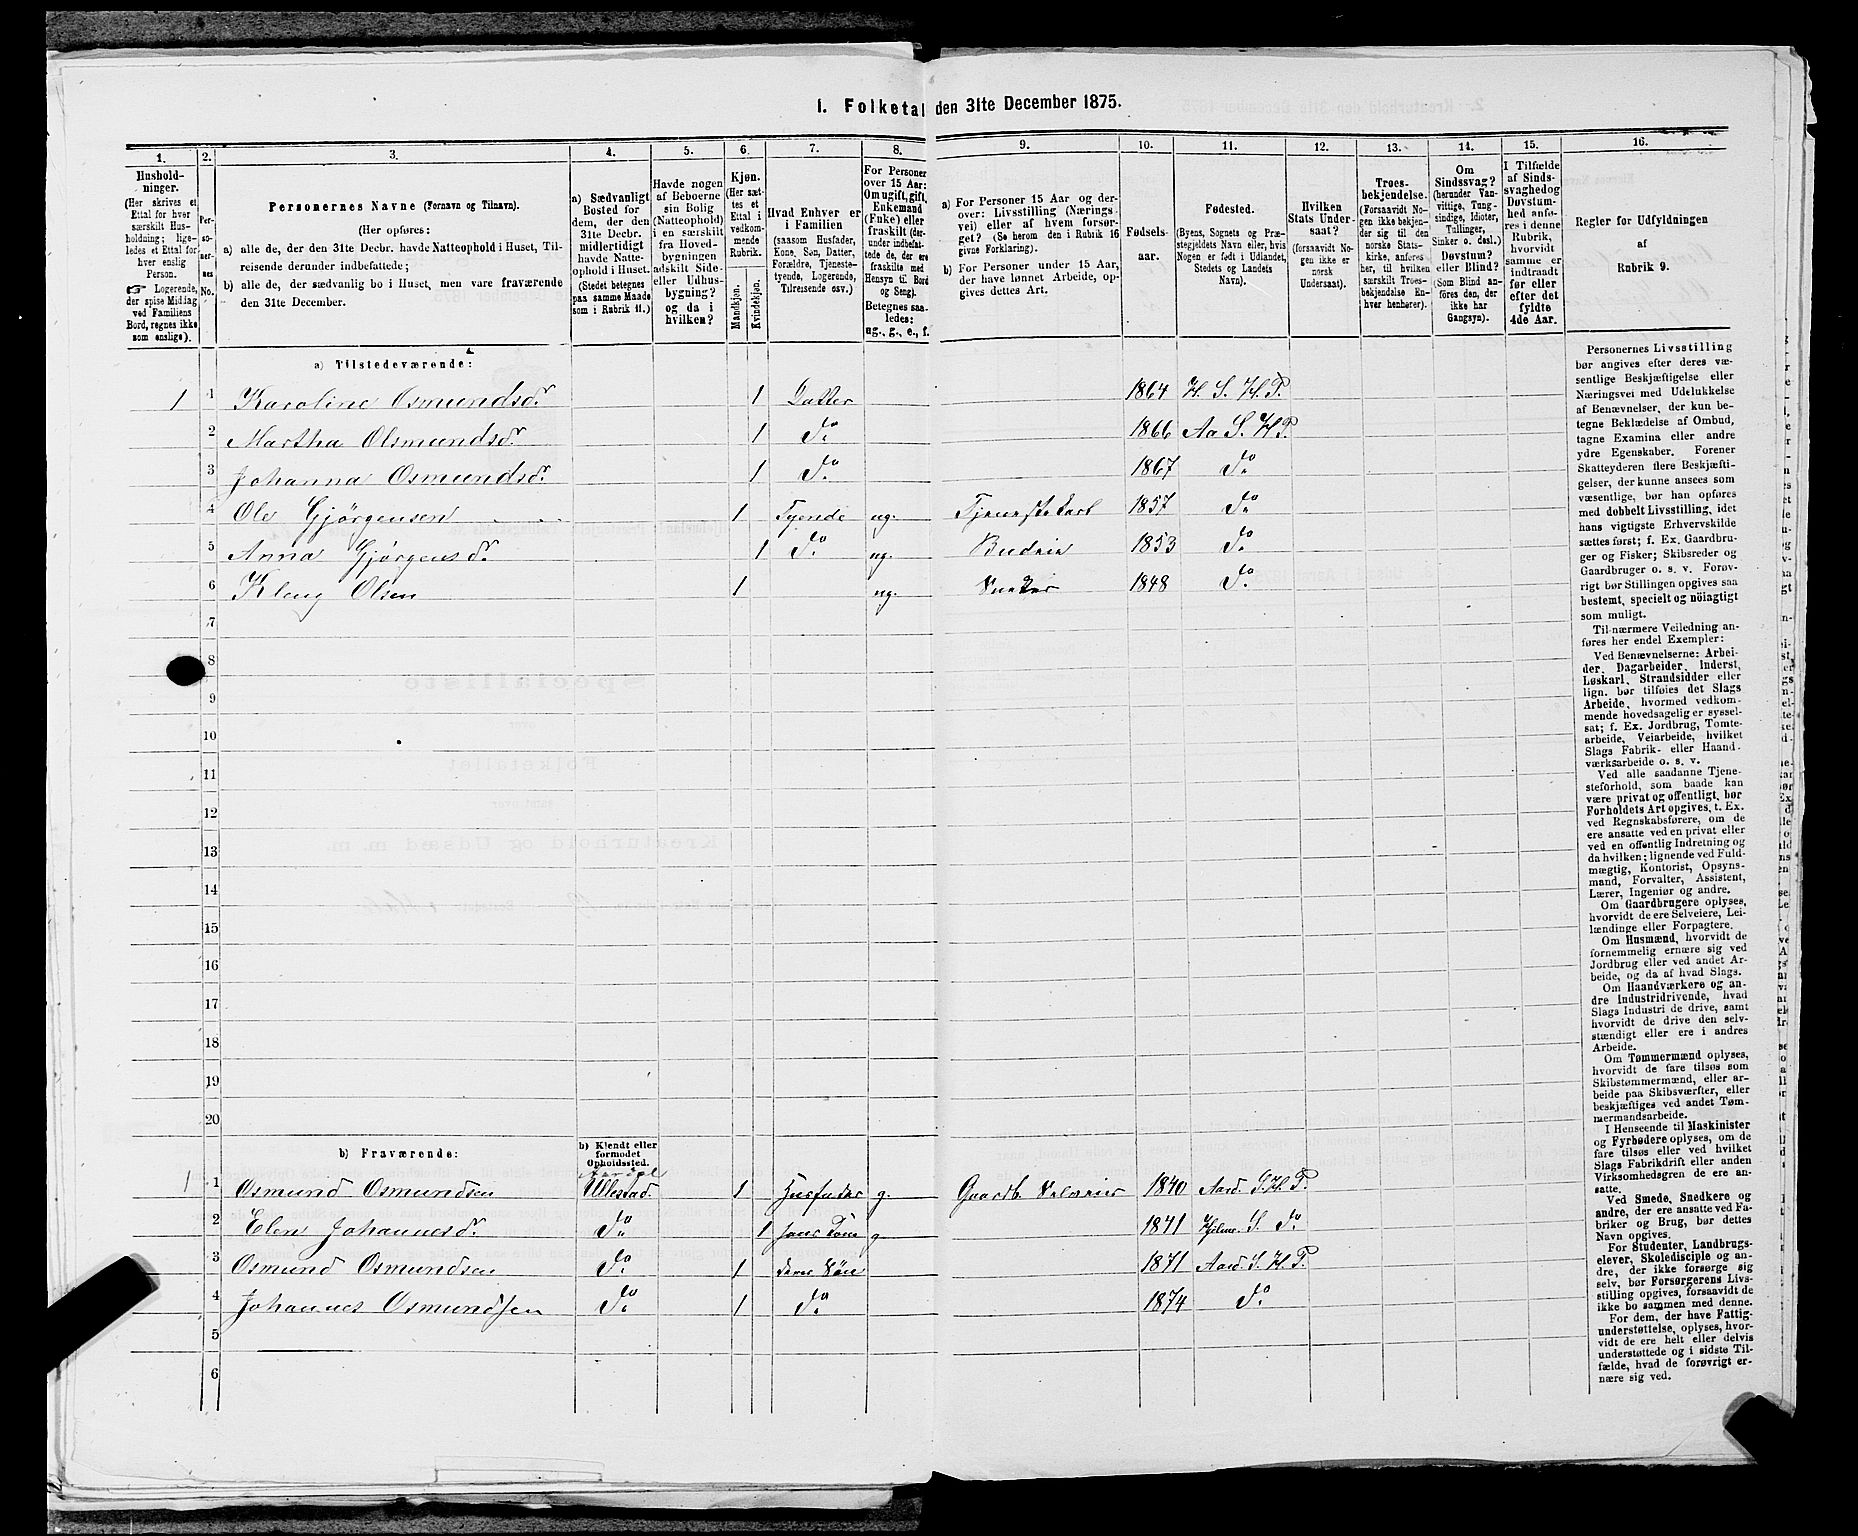 1. Folketal den 31te December 1875.
1. 2. 3. 4. 5. 6. 7. 8. 9. 10. 11. 12. 13. 14. 15. 16.
Hushold-
ninger.
(Her skrives et
Ettal for hver
særskilt Hus-
holdning; lige-
ledes et Ettal for
hver enslig
Person.
☞ Logerende,
der spise Middag
ved Familiens
Bord, regnes ikke
som enslige).
Per-
so-
ner-
nes
No.
Personernes Navne (Fornavn og Tilnavn).
(Her opføres:
a) alle de, der den 31te Decbr. havde Natteophold i Huset, Til-
reisende derunder indbefattede;
b) alle de, der sædvanlig bo i Huset, men vare fraværende
den 31te December.
a) Sædvanligt
Bosted for
dem, der den
31te Decbr.
midlertidigt
havde Natte-
ophold i Huset.
(Stedet betegnes
paa samme Maade
som i Rubrik 11.)
Havde nogen
af Beboerne
sin Bolig
(Natteophold)
i en særskilt
fra Hoved-
bygningen
adskilt Side-
eller Udhus-
bygning?
og da i
hvilken?
Kjøn.
(Her sæt-
tes et
Ettal i
vedkom-
mende
Rubrik.
Mandkjøn.
Kvindekjøn.
Hvad Enhver er
i Familien
(saasom Husfader,
Kone, Søn, Datter,
Forældre, Tjeneste-
tyende, Logerende,
Tilreisende osv.)
For Personer
over 15 Aar:
Om ugift, gift,
Enkemand
(Enke) eller
fraskilt (der-
under indbefat-
tede de, der ere
fraskilte med
Hensyn til Bord
og Seng).
Betegnes saa-
ledes:
ug., g., e., f.
a) For Personer 15 Aar og der-
over: Livsstilling (Nærings-
vei) eller af hvem forsør-
get? (Se herom den i Rubrik 16
givne Forklaring).
b) For Personer under 15 Aar,
der have lønnet Arbeide, op-
gives dettes Art.
Fødsels-
aar.
Fødested.
(Byens, Sognets og Præ-
stegjeldets Navn eller, hvis
Nogen er født i Udlandet,
Stedets og Landets
Navn).
Hvilken
Stats Under-
saat?
(forsaavidt No-
gen ikke er
norsk
Undersaat).
Troes-
bekjendelse.
(Forsaavidt No-
gen ikke bekjen-
der sig til den
norske Stats-
kirke, anføres
her, til hvilken
særskilt Troes-
bekjendelse En-
hver henhører).
Om
Sindssvag?
(herunder Van-
vittige, Tung-
sindige, Idioter,
Tullinger,
Sinker o. desl.)
Døvstum?
eller Blind?
(Som Blind an-
føres den, der
ikke har
Gangsyn).
I Tilfælde
af Sinds-
svaghed og
Døvstum-
hed anfø-
res i denne
Rubrik,
hvorvidt
samme er
indtraadt
før eller
efter det
fyldte
4de Aar.
Regler for Udfyldningen
af
Rubrik 9.
a) Tilstedeværende:
1 1 Karoline Osmundsdr 1 Datter 1864 H. S. H. P.
2 Martha Olsmundsdr 1 Do 1866 Aa S. H P.
3 Johanna Osmundsdr 1 Do 1867 Do
4 Ole Gjørgensen 1 Tyende ug. Tjenestekarl 1857 Do
5 Anna Gjørgensdr 1 Do ug. Budeie 1853 Do
6 Kleng Olsen 1 ug. 1848 Do
7
8
9
10
11
12
13
14
15
16
17
18
19
20
b) Fraværende:
b) Kjendt eller
formodet
Opholdssted.
Aardal
1 1 Osmund Osmundsen Ullestad 1 Husfader g. Gaardb. Selveier 1840 Aard. S. H. P.
2 Elen Johannesdr Do 1 hans Kone g 1841 Hjelme. S. Do
3 Osmund Osmundsen Do 1 deres Søn 1871 Aard. S. H. P.
4 Johannes Osmundsen Do 1 Do 1874 Do
5
6
Personernes Livsstilling
bør angives efter deres væ-
sentlige Beskjæftigelse eller
Næringsvei med Udelukkelse
af Benævnelser, der kun be-
tegne Beklædelse af Ombud,
tagne Examina eller andre
ydre Egenskaber. Forener
Skatteyderen flere Beskjæfti-
gelser, der kunne ansees som
væsentlige, bør han opføres
med dobbelt Livsstilling, idet
hans vigtigste Erhvervskilde
sættes først; f. Ex. Gaardbru-
ger og Fisker; Skibsreder og
Gaardbruger o. s. v. Forøv-
rigt bør Stillingen opgives saa
bestemt, specielt og nöiagtigt
som muligt.
Til nærmere Veiledning an-
føres her endel Exempler:
Ved Benævnelserne: Arbei-
der, Dagarbeider, Inderst,
Løskarl, Strandsidder eller
lign. bør tilføies det Slags
Arbeide, hvormed vedkom-
mende hovedsagelig er syssel-
sat; f. Ex. Jordbrug, Tomte-
arbeide, Veiarbeide, hvilket
Slags Fabrik- eller Haand-
værksarbeide o. s. v.
Ved alle saadanne Tjene-
steforhold, som baade kan
være privat og offentligt, bør
Forholdets Art opgives, t. Ex.
ved Regnskabsførere, om de
ere ansatte ved en privat eller
ved en offentlig Indretning og
da hvilken; lignende ved Fuld-
mægtig, Kontorist, Opsyns-
mand, Forvalter, Assistent,
Lærer, Ingeniør og andre.
Om Gaardbrugere oplyses,
hvorvidt de ere Selveiere, Lei-
lændinge eller Forpagtere.
Om Husmænd, hvorvidt de
fornemmelig ernære sig ved
Jordbrug eller ved andet Ar-
beide, og da af hvad Slags.
Om Haandværkere og an-
dre Industridrivende, hvad
Slags Industri de drive, samt
hvorvidt de drive den selv-
stændigt eller ere i andres
Arbeide.
Om Tømmermænd oplyses,
hvorvidt de fare tilsøs som
Skibstømmermænd, eller ar-
beide paa Skibsværfter, eller
beskjæftiges ved andet Tøm-
mermandsarbeide.
I Henseende til Maskinister
og Fyrbødere oplyses, om de
fare tilsøs eller ved hvilket
Slags Fabrikdrift eller anden
Virksomhedsgren de ere an-
satte.
Ved Smede, Snedkere og
andre, der ere ansatte ved Fa-
briker og Brug, bør dettes
Navn opgives.
For Studenter, Landbrugs-
elever, Skoledisciple og an-
dre, der ikke forsørge sig
selv, bør Forsørgerens Livs-
stilling opgives, forsaavidt de
ikke bo sammen med denne.
For dem, der have Fattig-
understøttelse, oplyses, hvor-
vidt de ere helt eller delvis
understøttede og i sidste Til-
fælde, hvad de forøvrigt er-
nære sig ved.